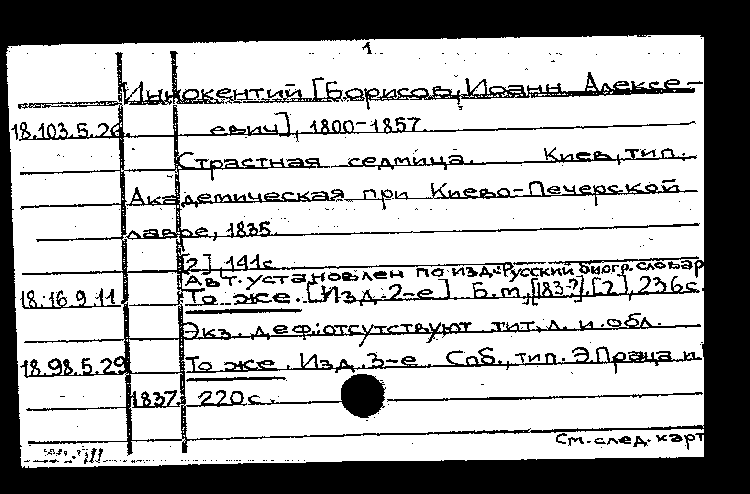 1
Иннокентий [Борисов, Иоанн Алексе-
18.103.5.26. евич], 1800-1857.
Страстная седмица. Киев, тип.
Академическая при Киево-Печерской
лавре, 1835.
[2], 141с.
Авт. установлен по изд.: Русский биогр. словар
18.16.9.11. То же. [Изд. 2-е] Б.м., [183-?]. [2], 236с.
Экз. деф.: отсутствуют тит. л. и обл.
18.98.5.29 То же. Изд. 3-е. Спб., тип. Э.Праца и
1837. 220с.
См. след. карт